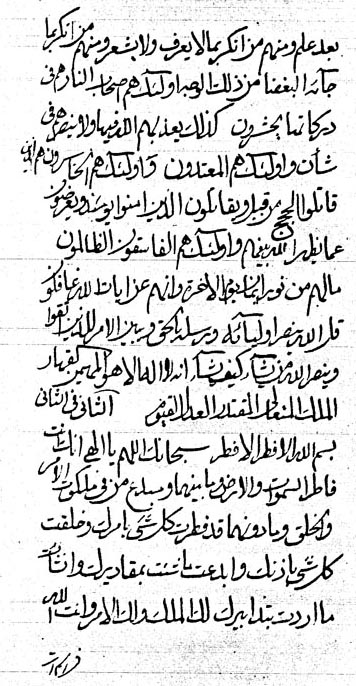 بعد علم ومنهم من انكر بما لا يعرف ولا يشعر ومنهم من انكر بما
جآئه البغضآ من ذلك الوجه اولئك هم اصحاب النار هم فى
دركاتها يحشرون كذلك يعذبهم الله فيها ولا ينصرهم فى
شأن واولئك هم المعتدون واولئك هم الخاسرون هم الذين
قاتلوا الحجج من قبل ويقاتلون الذين امنوا بالله ويعرضون
عما يظهر الله بينهم واولئك هم الفاسقون الظالمون
مالهم من نور الاخرة وانهم عن ايات الله غافلون
قل الله ينصر اوليائه ويرسله بالحق ويبين الامر للذين اتقوا
وينصر الله من يشآء كيف يشآء انه لا اله الا هو المهيمن القهار
الملك المتعالى المقتدر العدل القيوم الثانى فى الثانى
بسم الله الافطر الافطر سبحانك اللهم يا الهى انك انت
فاطر السموات والارض وما بينهما ومبدع من فى ملكوت الامر
والخلق وما دونهما قد فطرت كلشئ بامرك وخلقت
كلشئ باذنك وابدعت ما شئت بمقاديرك وانشأت
ما اردت بتدابيرك لك الملك ولك الامر وانت الله